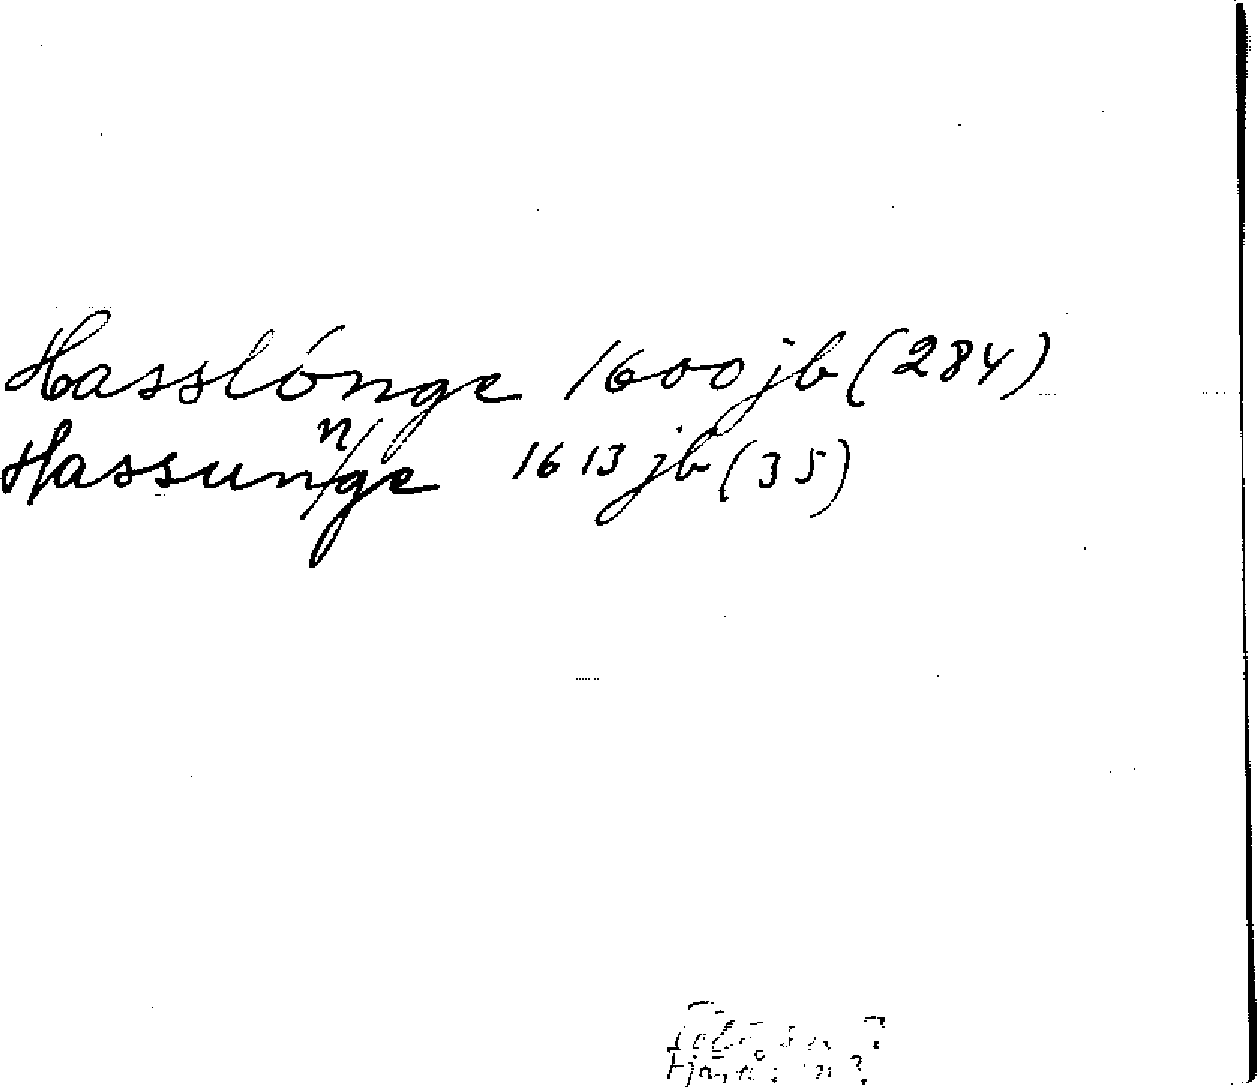 Hasslónge 1600 jb (284)
Hassunge 1613 jb (35)
n/